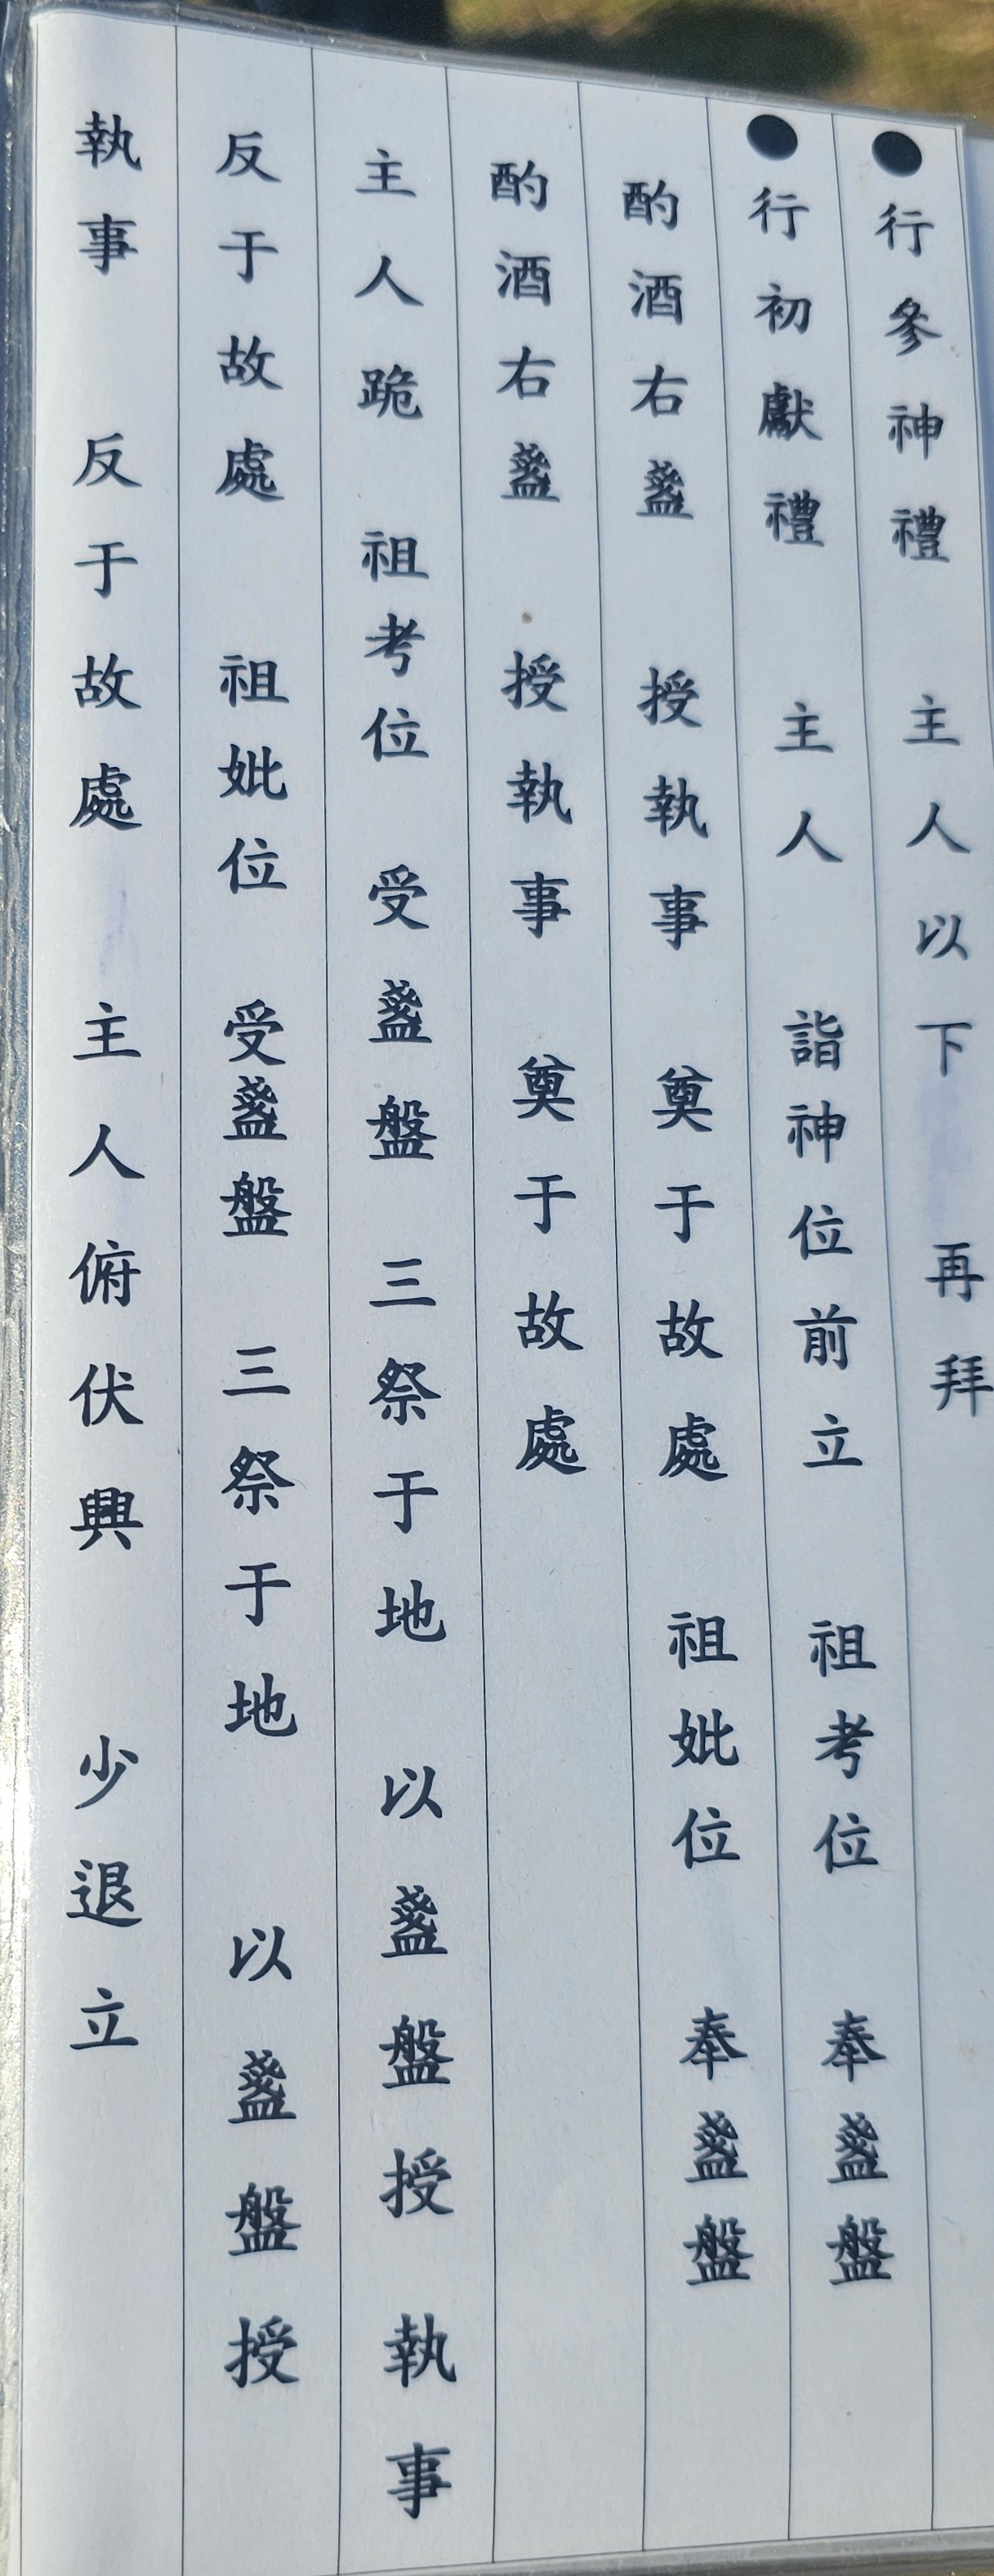 ●行參神禮 主人以下 再拜
●行初獻禮 主人 詣神位前立 祖考位 奉盞盤
酌酒右盞 授執事 奠于故處 祖妣位 奉盞盤
酌酒右盞 授執事 奠于故處
主人跪 祖考位 受盞盤 三祭于地 以盞盤授執事
反于故處 祖妣位 受盞盤 三祭于地 以盞盤授
執事 反于故處 主人俯伏興 少退立